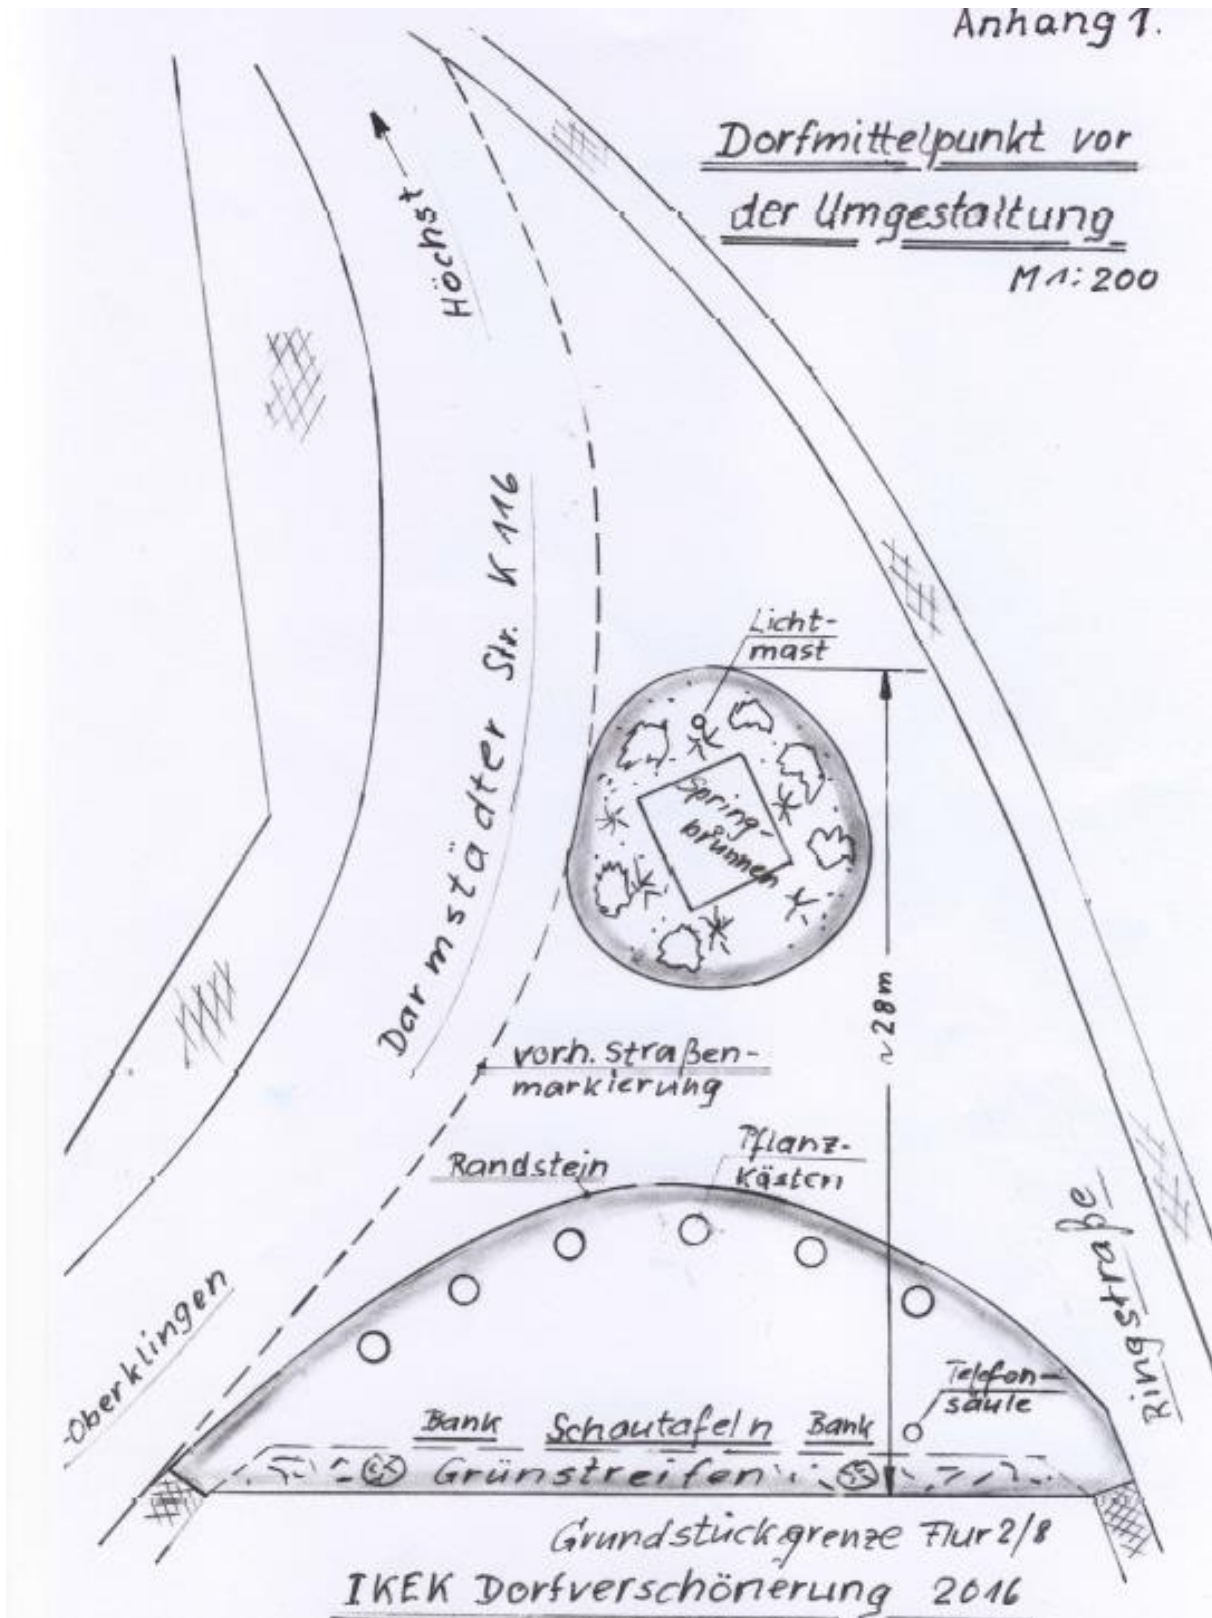 Anhang 1.
Dorfmittelpunkt vor
der Umgestaltung
M 1:200
Höchst
Darmstädter Str. K 116
Licht-
mast
Spring-
brunnen
~28m
vorh. Straßen-
markierung
Randstein
Pflanz-
kästen
Ringstraße
Oberklingen
Telefon-
säule
Bank Schautafeln Bank
Grünstreifen
Grundstücksgrenze Flur 2/8
IKEK Dorfverschönerung 2016